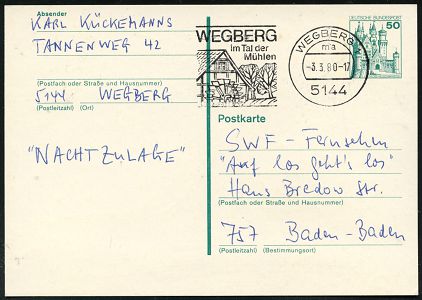 Absender
KARL KÜCKEMANNS
TANNENWEG 42
(Postfach oder Straße und Hausnummer)
5144 WEGBERG
(Postleitzahl) (Ort)
"NACHTZULAGE"
WEGBERG
Im Tal der
Mühlen
WEGBERG
ma
-3.3.80-17
5144
DEUTSCHE BUNDESPOST
50
Postkarte
SWF-Fernsehen
"Auf los geht's los"
Hans Bredow Str.
(Postfach oder Straße und Hausnummer)
757 Baden-Baden
(Postleitzahl) (Bestimmungsort)